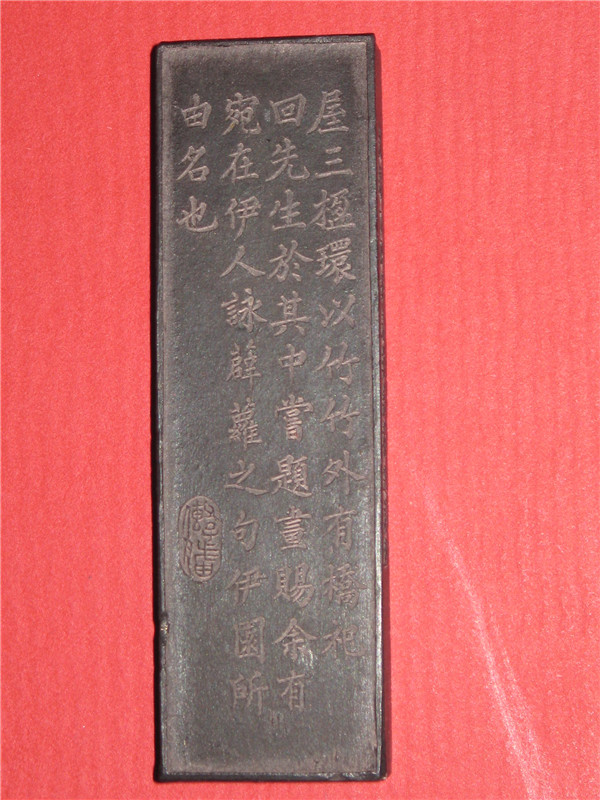 屋三楹環以竹竹外有橋祀
回先生於其中嘗題畫賜余有
宛在伊人詠薜蘿之句伊園所
由名也